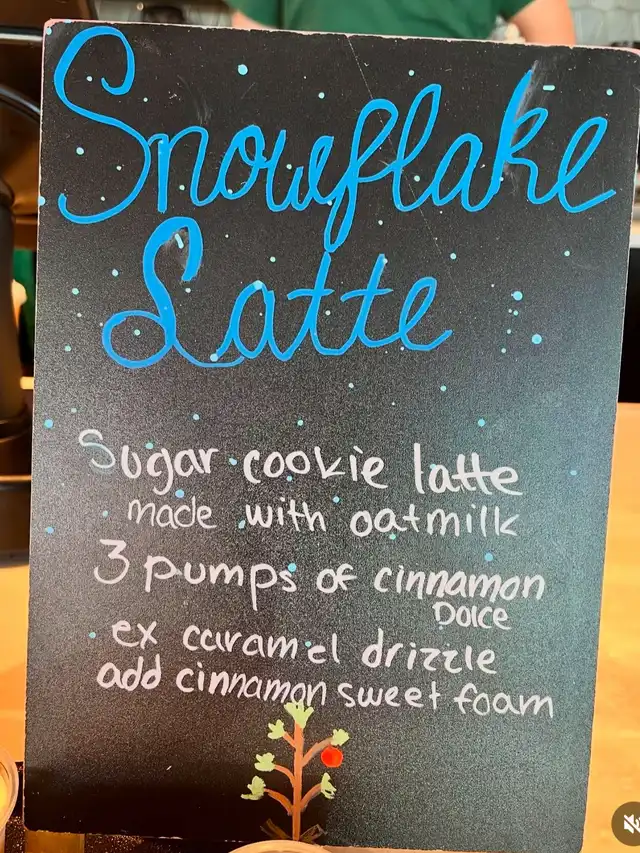 Snowflake
Latte
Sugar cookie latte
made with oatmilk
3 pumps of cinnamon
Dolce
ex caramel drizzle
add cinnamon sweet foam